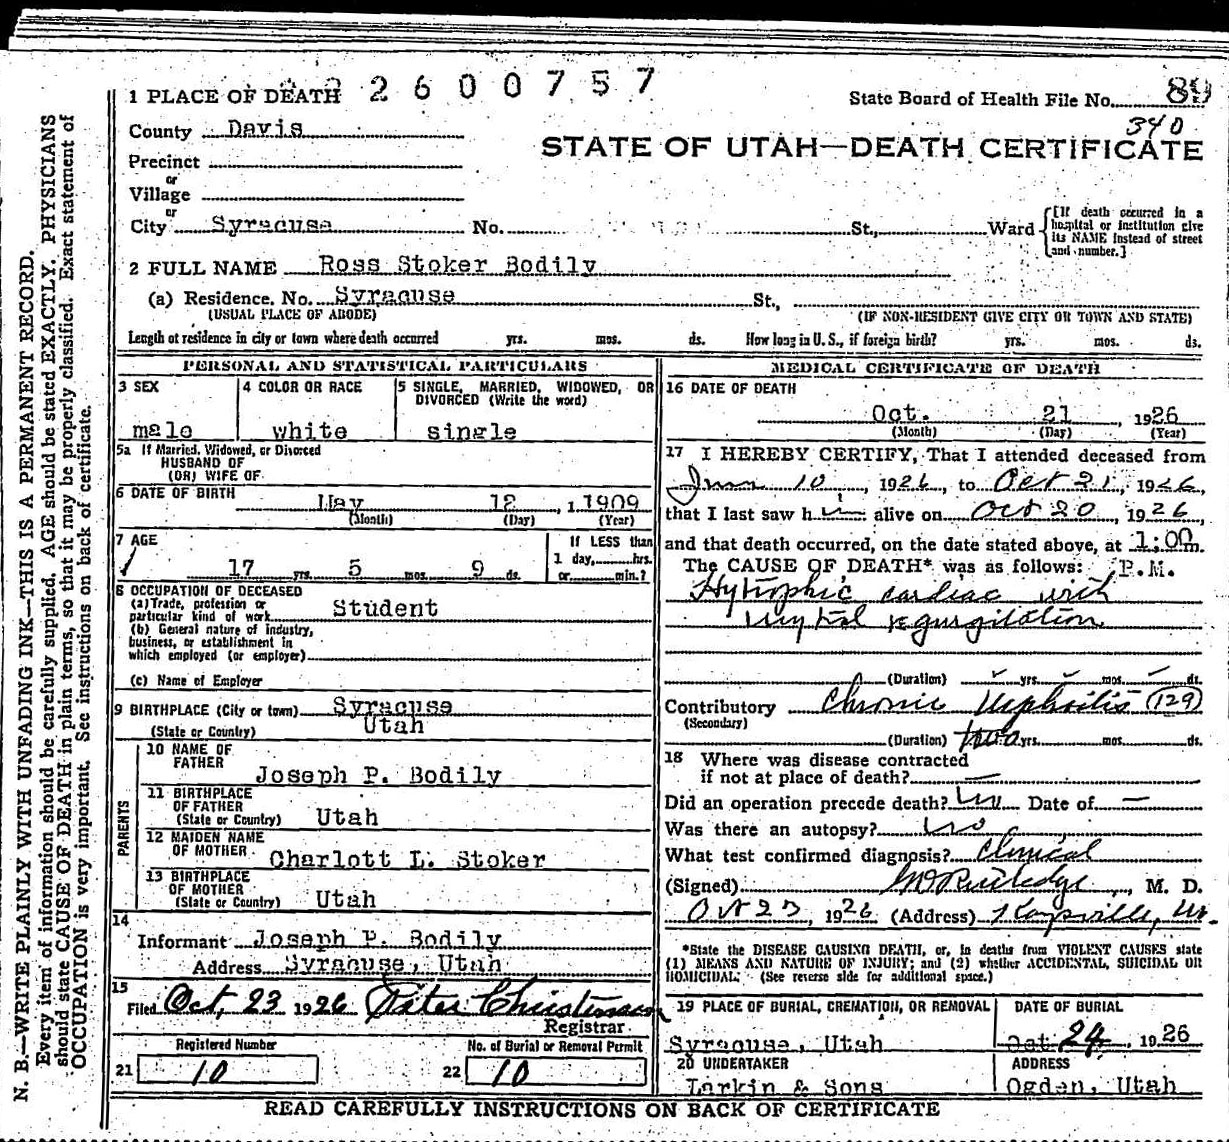 N. B.—WRITE PLAINLY WITH UNFADING INK—THIS IS A PERMANENT RECORD.
Every item of information should be carefully supplied. AGE should be stated EXACTLY. PHYSICIANS
should state CAUSE OF DEATH in plain terms, so that it may be properly classified. Exact statement of
OCCUPATION is very important. See instructions on back of certificate.
1 PLACE OF DEATH 2600757
State Board of Health File No. 89
340
County Davis
STATE OF UTAH—DEATH CERTIFICATE
Precinct
or
Village
or
City Syracuse No. St., Ward
[If death occurred in a
hospital or institution give
its NAME instead of street
and number.]
2 FULL NAME Ross Stoker Bodily
(a) Residence. No. Syracuse St.,
(USUAL PLACE OF ABODE) (IF NON-RESIDENT GIVE CITY OR TOWN AND STATE)
Length of residence in city or town where death occurred yrs. mos. ds. How long in U. S., if foreign birth? yrs. mos. ds.
PERSONAL AND STATISTICAL PARTICULARS
3 SEX
male
4 COLOR OR RACE
white
5 SINGLE, MARRIED, WIDOWED, OR
DIVORCED (Write the word)
single
5a If Married, Widowed, or Divorced
HUSBAND OF
(OR) WIFE OF
6 DATE OF BIRTH
May 12, 1909
(Month) (Day) (Year)
7 AGE
17 yrs. 5 mos. 9 ds.
If LESS than
1 day, hrs.
or min.?
8 OCCUPATION OF DECEASED
(a) Trade, profession or
particular kind of work Student
(b) General nature of industry,
business, or establishment in
which employed (or employer)
(c) Name of Employer
9 BIRTHPLACE (City or town) Syracuse
(State or Country) Utah
PARENTS
10 NAME OF
FATHER
Joseph P. Bodily
11 BIRTHPLACE
OF FATHER
(State or Country) Utah
12 MAIDEN NAME
OF MOTHER
Charlott L. Stoker
13 BIRTHPLACE
OF MOTHER
(State or Country) Utah
14
Informant Joseph P. Bodily
Address Syracuse, Utah
15
Filed Oct, 23 1926 Peter Christensen
Registrar
Registered Number
21 10
No. of Burial or Removal Permit
22 10
MEDICAL CERTIFICATE OF DEATH
16 DATE OF DEATH
Oct. 21 1926
(Month) (Day) (Year)
17 I HEREBY CERTIFY, That I attended deceased from
10, 1926, to Oct 21, 1926,
that I last saw h im alive on Oct 20, 1926,
and that death occurred, on the date stated above, at 1:00 m.
The CAUSE OF DEATH* was as follows: P.M.
Hytrophic cardiac with
mytral regurgitation
(Duration) yrs. mos. ds.
Contributory Chronic Nephritis (129)
(Secondary)
(Duration) two yrs. mos. ds.
18 Where was disease contracted
if not at place of death? —
Did an operation precede death? no Date of —
Was there an autopsy? no
What test confirmed diagnosis? Clinical
(Signed) Rutledge, M. D.
Oct 23, 1926 (Address) Kaysville, Ut.
*State the DISEASE CAUSING DEATH, or, in deaths from VIOLENT CAUSES state
(1) MEANS AND NATURE OF INJURY; and (2) whether ACCIDENTAL, SUICIDAL OR
HOMICIDAL. (See reverse side for additional space.)
19 PLACE OF BURIAL, CREMATION, OR REMOVAL
Syracuse, Utah
DATE OF BURIAL
Oct 24, 1926
20 UNDERTAKER
Larkin & Sons
ADDRESS
Ogden, Utah
READ CAREFULLY INSTRUCTIONS ON BACK OF CERTIFICATE